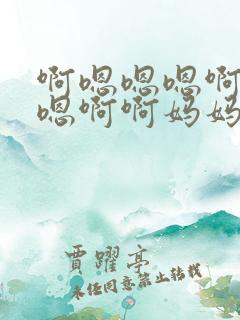 啊嗯嗯嗯啊
嗯啊啊妈妈
贾躍亭
未经同意禁止转载